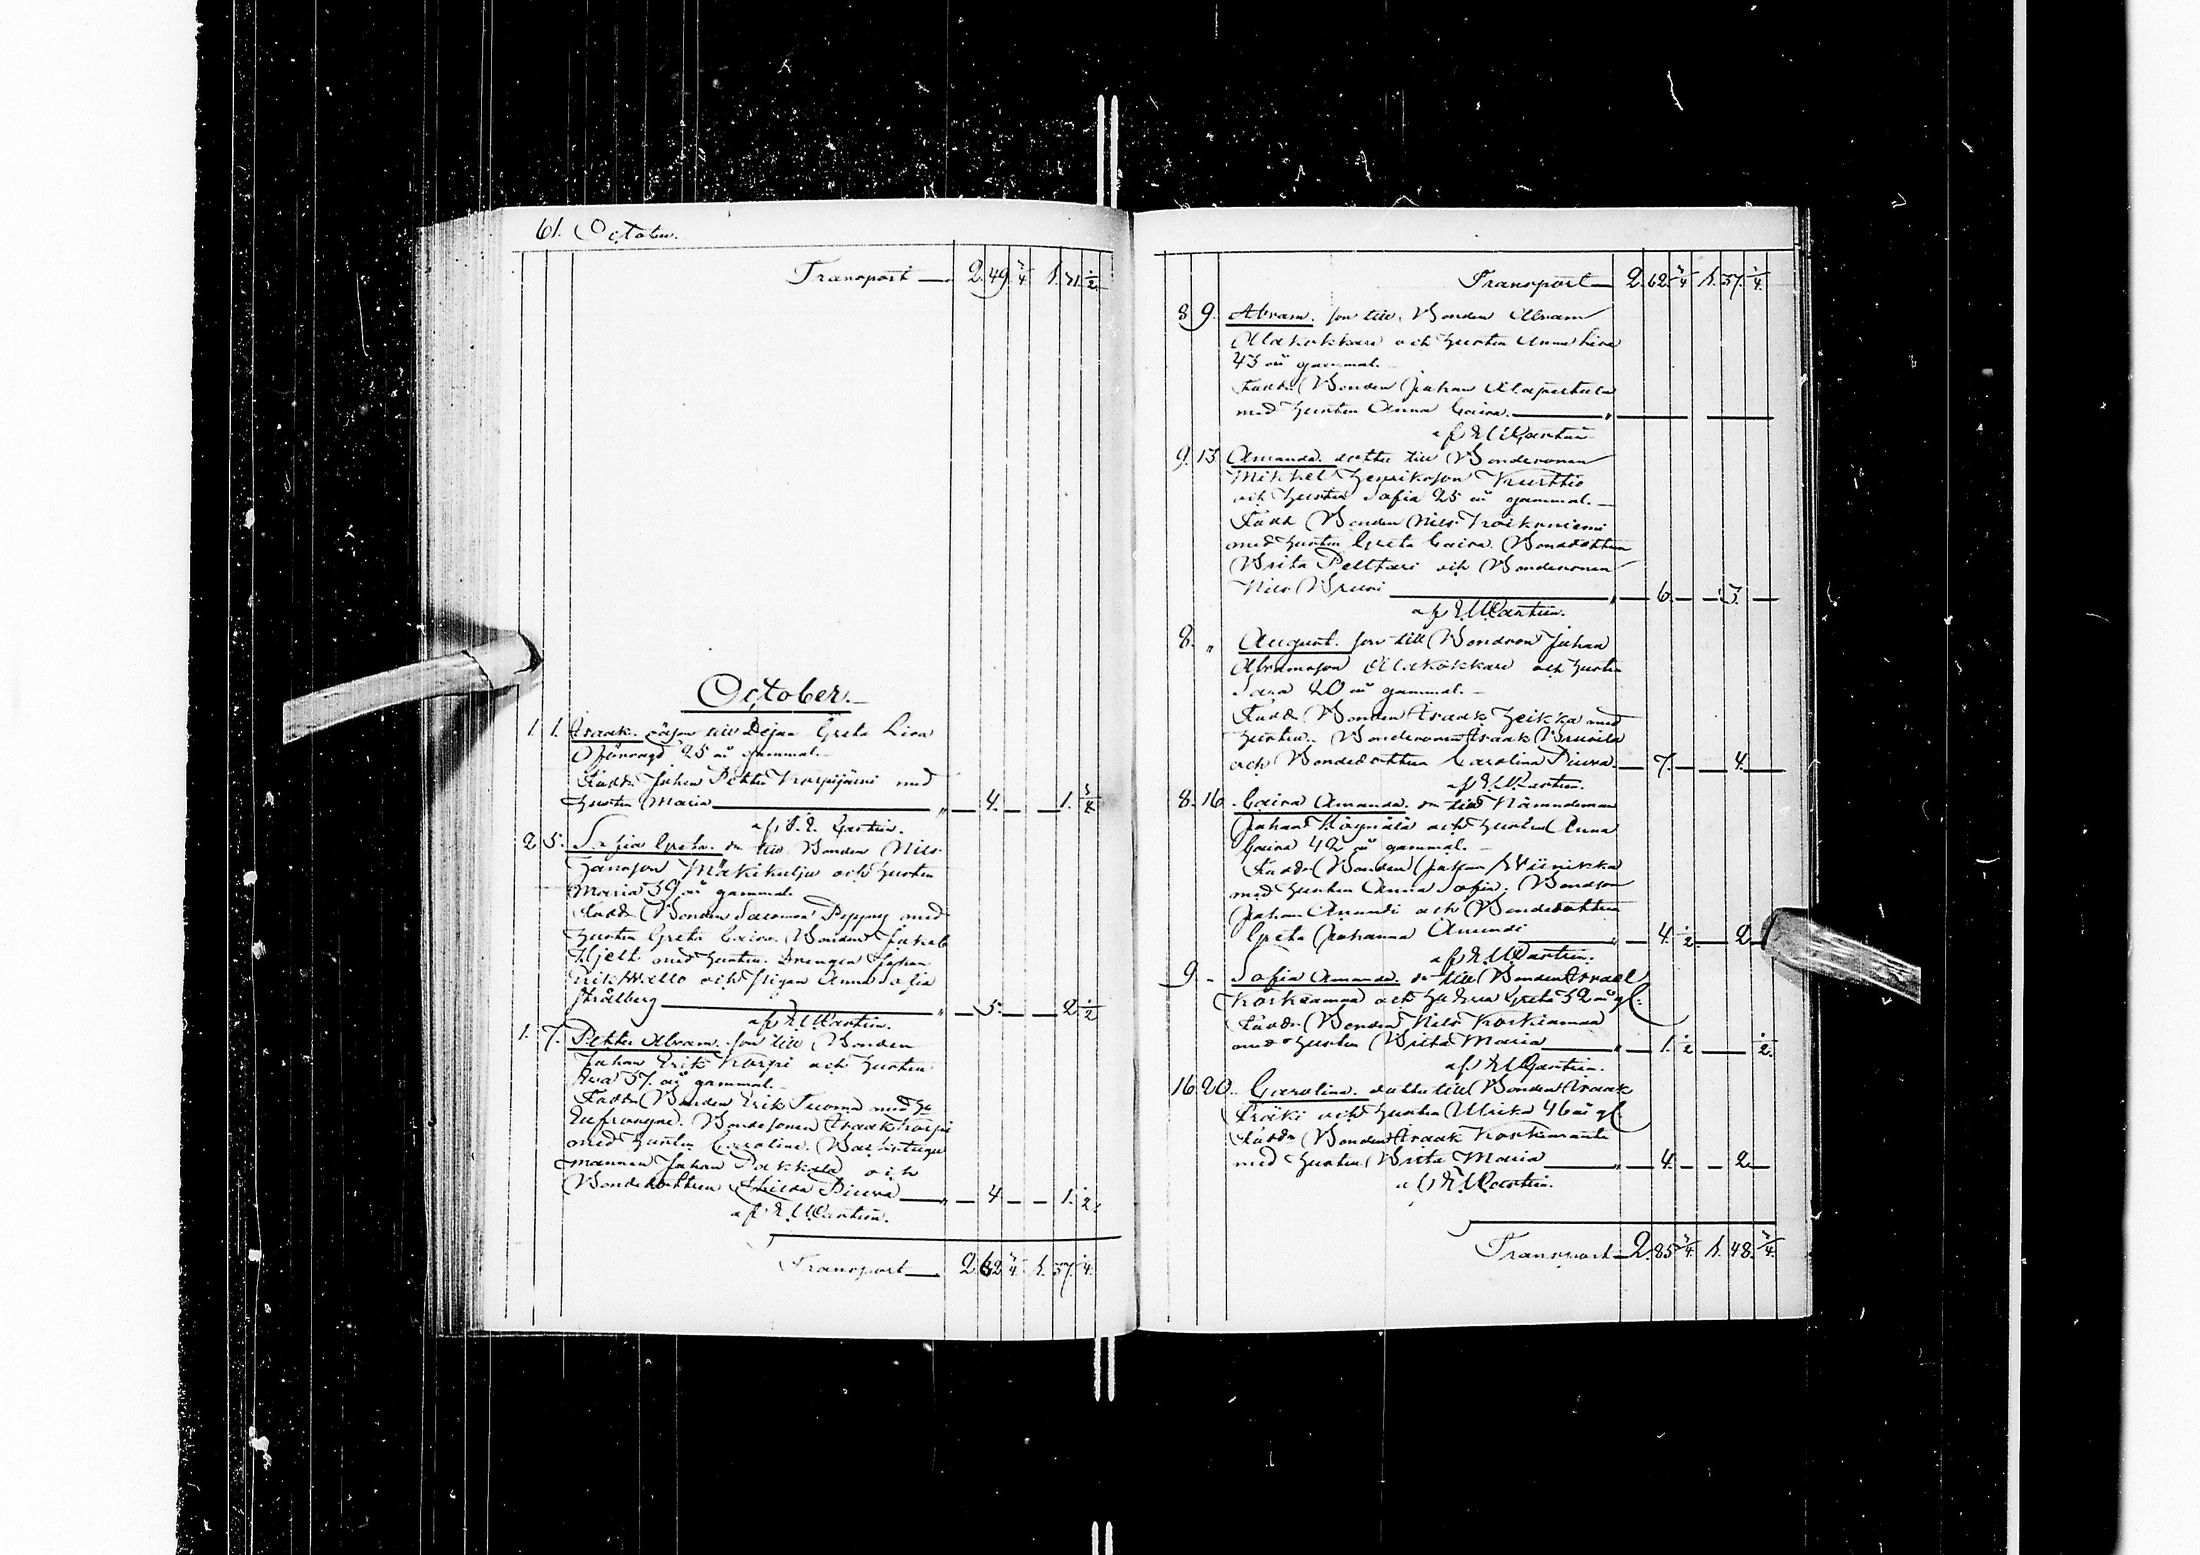 61. October.
Transport — 2. 49 3/4 1. 31 1/2
October.
1. 1. Isaak. oäson till Pejan Greta Lisa
25 år gammal.
Fadd. Johan Petter Korpijärvi med
hustru Maria — „ — 4. — — 1. 3/4
af
2. 5. Sofia Greta. dr till Bonden Nils
Hansson Mäkikulju och hustru
Maria 39 år gammal.
Fadd. Bonden Salomon Peppuj med
hustru Greta Caisa. Bonden Jakob
Hjelt med hustru. Drengen Johan
Erik Wello och pigan Anna Sofia
Strålberg — „ — 5. — — 2. 1/2
af
1. 7. Petter Abram. son till Bonden
Johan Erik Korpi och hustru
Eva 37. år gammal.
Fadd. Bonden Erik Tuoma med hu
Eufrosyne. Bondesonen Isaak Korpi
med hustru Carolina. Backstugu
mannen Johan Pakkala och
Bondedottren Hilda Piuva — „ — 4 — — 1. 1/2.
af
Transport — 2 62 3/4 1. 37. 1/4.
Transport — 2. 62. 3/4 1. 37. 1/4.
8 9. Abram. son till Bonden Abram
Alakokkare och hustru Anna Lisa
43 år gammal.
Fadd. Bonden Johan Alapietula
med hustru Anna Caisa. — „
af
9. 13 Amanda. dotter till Bondesonen
Mikkel Henriksson Kurttio
och hustru Sofia 25 år gammal. —
Fadd. Bonden Nils Koikuniemi
med hustru Greta Caisa. Bondedottren
Brita Pelttari och Bondesonen
Nils — „ — 6. — — 3. —
af
8. „ August. son till Bondeson Johan
Abramsson Alakokkare och hustru
Sara 20 år gammal. —
Fadd. Bonden Isaak Heikka med
hustru. Bondesonen Isaak
och Bondedottren Carolina Piuva. — 7. — — 4. —
af
8. 16. Caisa Amanda. dr till Nämndeman
Johan Käynälä och hustru Anna
Caisa 42 år gammal. —
Fadd. Bonden Johan Wiinikka
med hustru Anna Sofia. Bondson
Johan Anundi och Bondedottren
Greta Johanna Anundi — „ — 4. 1/2 — 2. —
af
9. „ Sofia Amanda. dr till Bonden Israel
Koskiamaa och hustru Greta 32 år gl.
Fadd. Bonden Nils Koskiamaa
med hustru Brita Maria — „ — 1. 1/2 — — 1/2.
af
16. 20. Carolina. dotter till Bonden Isaak
Fräki och hustru Ulrika 46 år gl
Fadd. Bonden Isaak
med hustru Brita Maria — „ — 4. — — 2 —
af
Transport — 2. 85 3/4. 1. 48. 3/4.